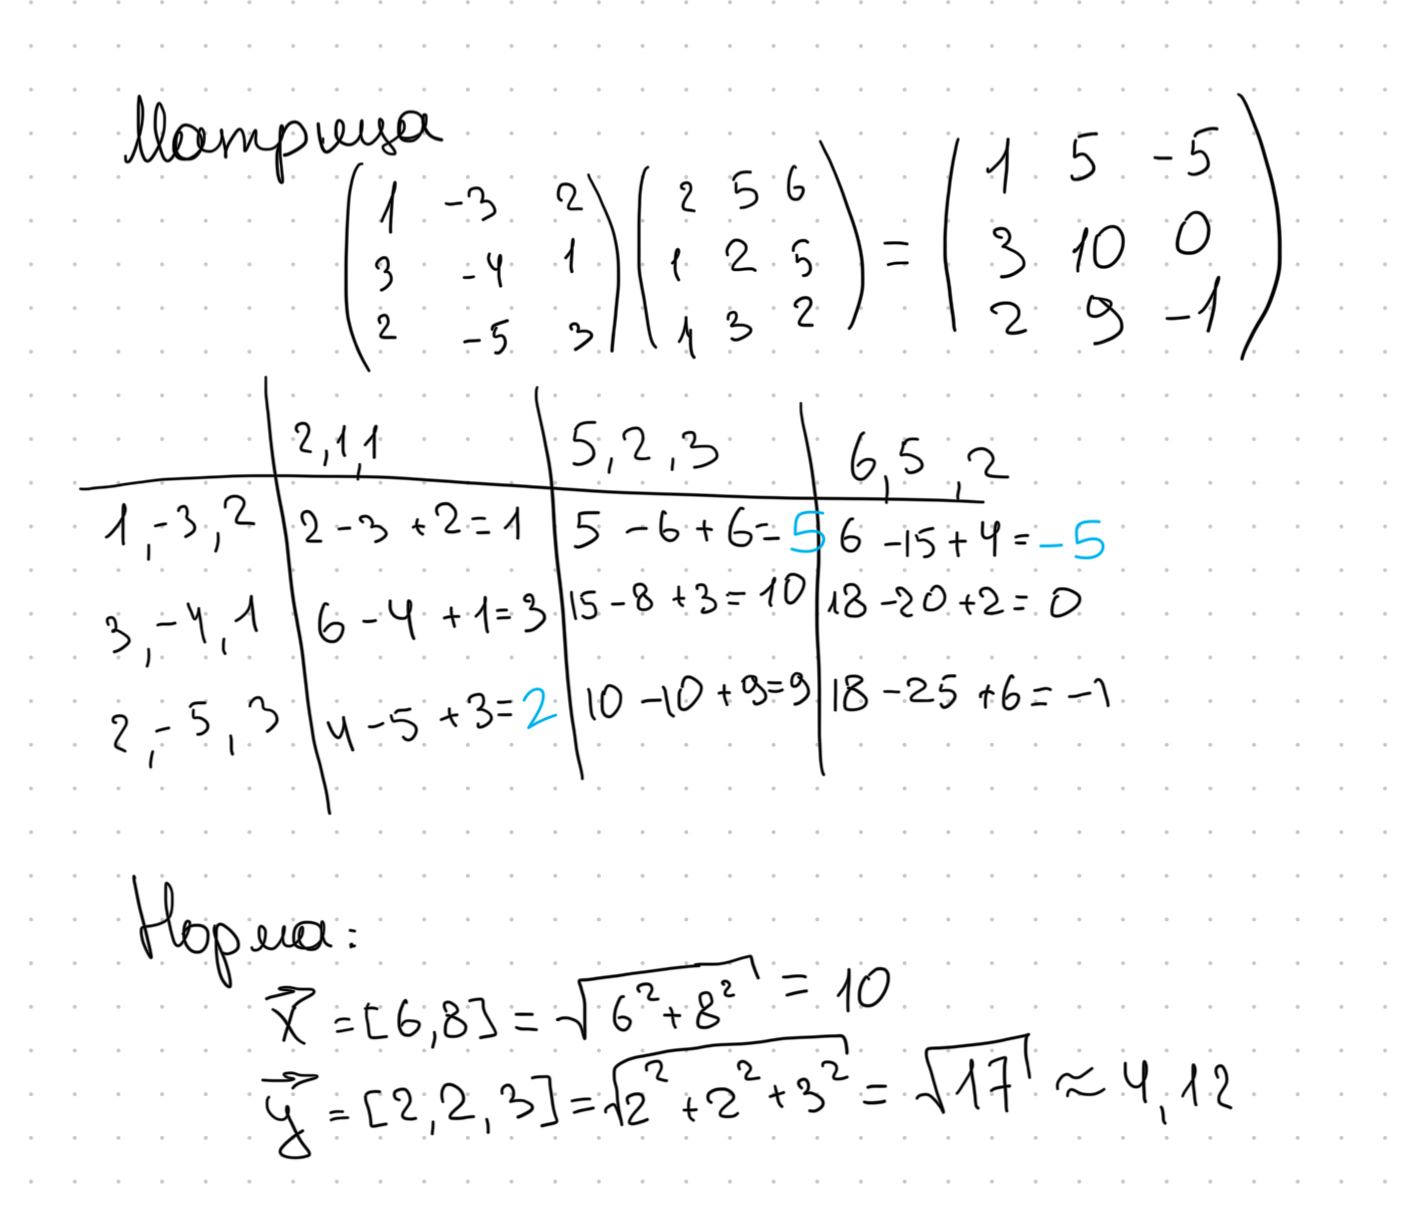 Матрица
( 1 -3 2 ) ( 2 5 6 ) = ( 1 5 -5 )
( 3 -4 1 ) ( 1 2 5 ) ( 3 10 0 )
( 2 -5 3 ) ( 1 3 2 ) ( 2 9 -1 )
2,1,1 | 5,2,3 | 6,5,2
1,-3,2 | 2-3+2=1 | 5-6+6=5 | 6-15+4=-5
3,-4,1 | 6-4+1=3 | 15-8+3=10 | 18-20+2=0
2,-5,3 | 4-5+3=2 | 10-10+9=9 | 18-25+6=-1
Норма:
x⃗ = [6,8] = √(6²+8²) = 10
y⃗ = [2,2,3] = √(2²+2²+3²) = √17 ≈ 4,12